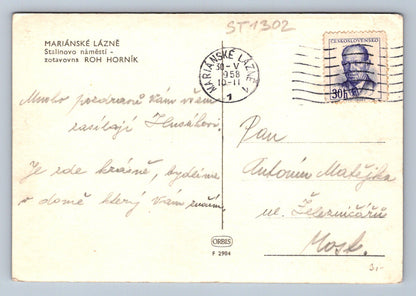 ST1302
MARIÁNSKÉ LÁZNĚ
Stalinovo náměstí -
zotavovna ROH HORNÍK
MARIÁNSKÉ LÁZNĚ
30-V
1958
10-11
1
ČESKOSLOVENSKO
30h
Mnoho pozdravů Vám všem
zasílají
Je zde krásně, bydlíme
v domě který Vám
Pan
Antonín Matějka
ul. Železničářů
Most.
ORBIS
F 2984
3,-